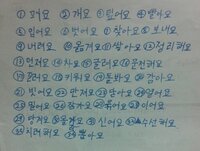 ① 펴요 ② 개요 ③ 털어요 ④ 빨아요
⑤ 입어요 ⑥ 벗어요 ⑦ 찾아요 ⑧ 보내요
⑨ 버려요 ⑩ 옮겨요 ⑪ 쌓아요 ⑫ 정리해요
⑬ 던져요 ⑭ 차요 ⑮ 굴려요 ⑯ 운전해요
⑰ 흘려요 ⑱ 키워요 ⑲ 돌봐요 ⑳ 감아요
㉑ 빗어요 ㉒ 만져요 ㉓ 닫아요 ㉔ 열어요
㉕ 밀어요 ㉖ 잠가요 ㉗ 묶어요 ㉘ 이어요
㉙ 당겨요 신어요 수선해요
차려해요 뽑아요